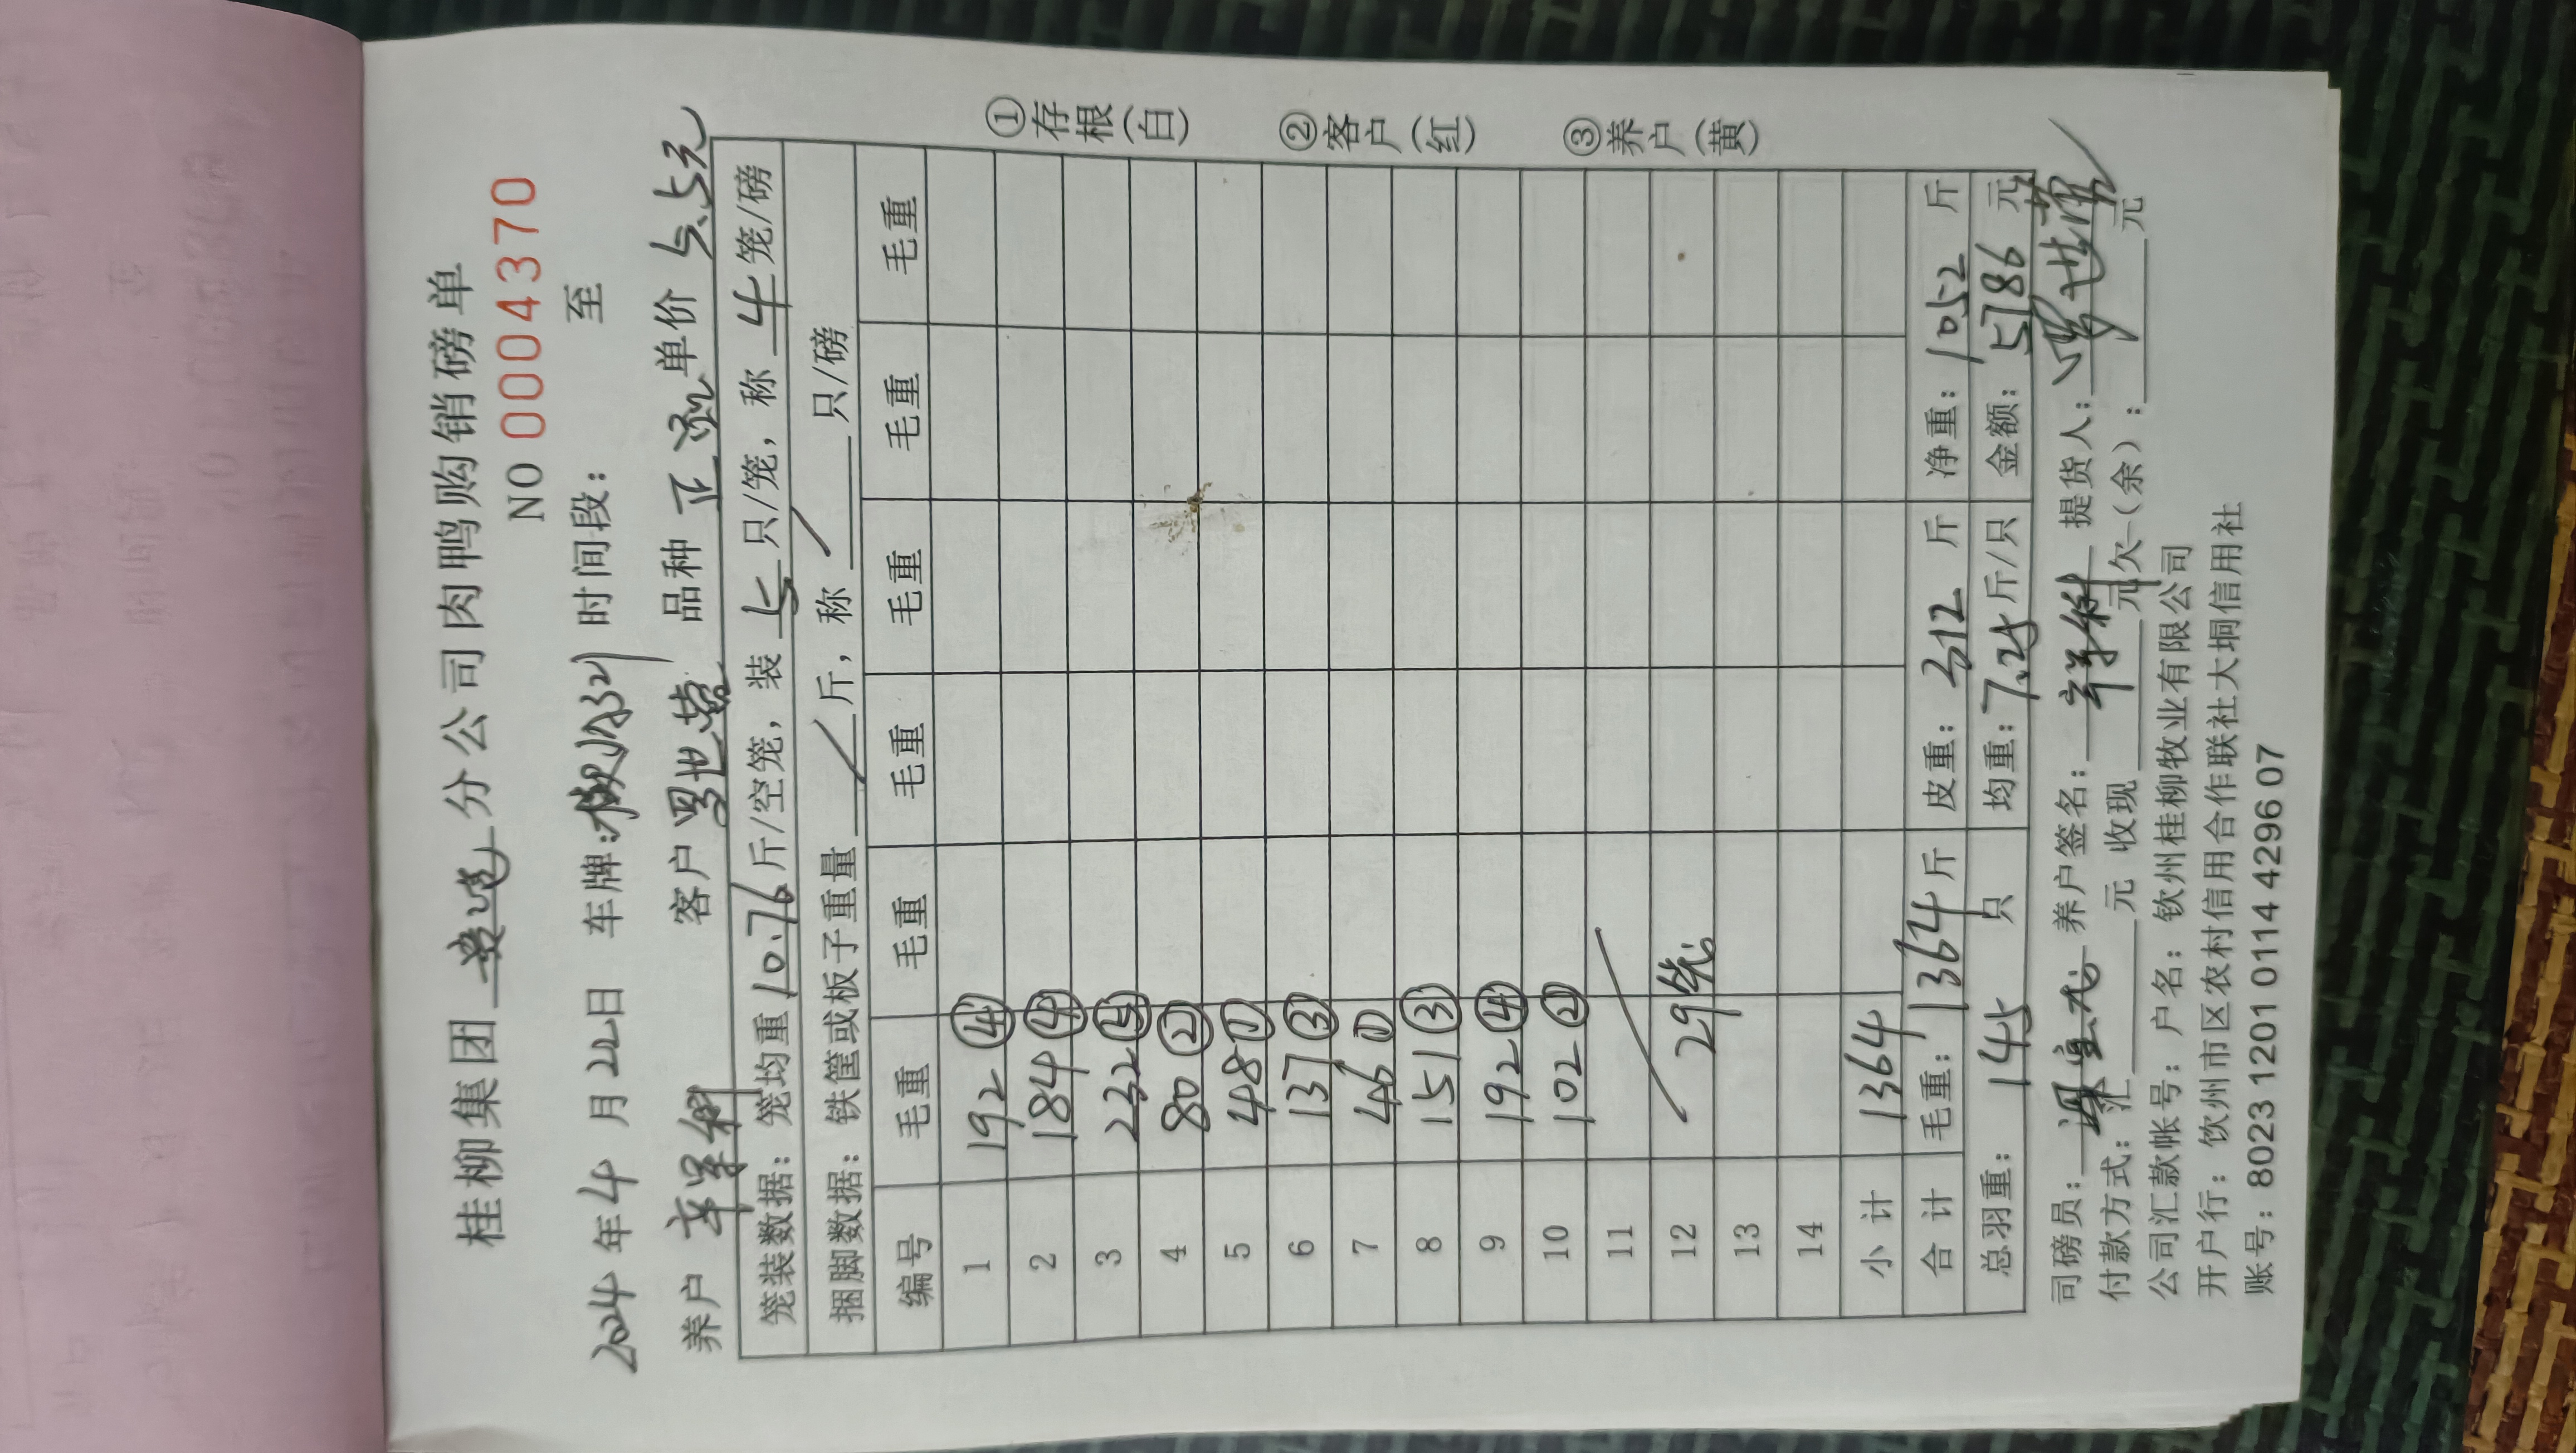 桂柳集团 分公司肉鸭购销磅单
NO 0004370
2024年4月22日 车牌: 时间段： 至
养户 客户 罗世 品种 正 单价 5.5元
笼装数据：笼均重 10.76 斤/空笼，装 5 只/笼，称 4 笼/磅
捆脚数据：铁筐或板子重量 / 斤，称 / 只/磅
编号 毛重 毛重 毛重 毛重 毛重 毛重
1 192 ④
2 184 ④
3 232 ⑤
4 80 ②
5 48 ①
6 137 ③
7 46 ①
8 151 ③
9 192 ④
10 102 ②
11
12 29笼
13
14
小计 1364
合计 毛重：1364斤 皮重：312 斤 净重：1052 斤
总羽重：145 只 均重：7.25斤/只 金额：5786 元
司磅员： 养户签名： 提货人：罗世
付款方式：汇 元 收现 元 欠（余）： 元
公司汇款帐号：户名：钦州桂柳牧业有限公司
开户行：钦州市区农村信用合作联社大垌信用社
账号：8023 1201 0114 4296 07
①存根(白) ②客户(红) ③养户(黄)